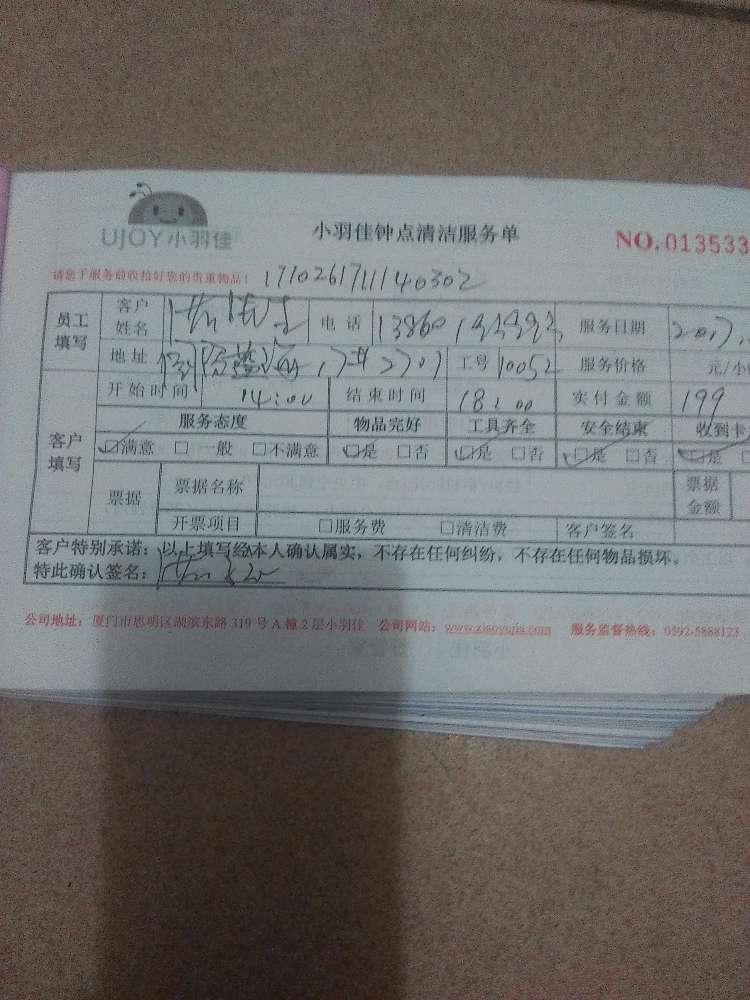 UJOY小羽佳
小羽佳钟点清洁服务单
NO.013533
请您于服务前收拾好您的贵重物品! 1710261711140302
员工填写 客户姓名 电话 13860 服务日期 2017.
地址 工号 10052 服务价格 元/小
客户填写 开始时间 14:00 结束时间 18:00 实付金额 199
服务态度 物品完好 工具齐全 安全结束 收到卡
☑满意 □一般 □不满意 ☑是 □否 ☑是 □否 ☑是 □否 ☑是
票据 票据名称 票据金额
开票项目 □服务费 □清洁费 客户签名
客户特别承诺:以上填写经本人确认属实,不存在任何纠纷,不存在任何物品损坏。
特此确认签名:
公司地址:厦门市思明区湖滨东路319号A幢2层小羽佳 公司网站:www.xiaoyujia.com 服务监督热线:0592-5888123